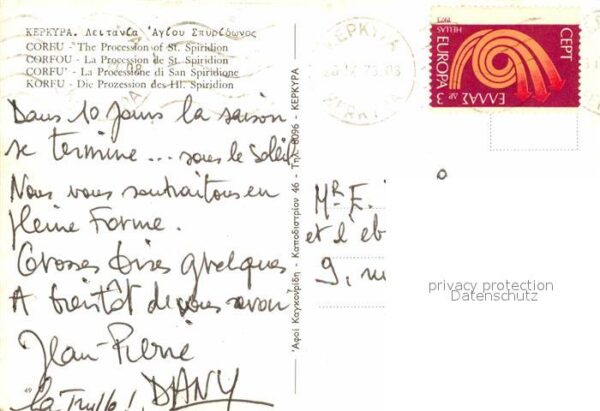 ΚΕΡΚΥΡΑ. Λειτανία Ἁγίου Σπυρίδωνος
CORFU - The Procession of St. Spiridion
CORFOU - La Procession de St. Spiridion
CORFU' - La Processione di San Spiridione
KORFU - Die Prozession des Hl. Spiridion
Dans 10 jours la saison
se termine... sous le soleil
Nous vous souhaitons en
pleine forme.
Grosses bises grecques
A bientôt de vous revoir
Jean-Pierre
DANY
49
Ἀφοί Καγκουρίδη - Καποδιστρίου 46 - Τηλ. 8096 - ΚΕΡΚΥΡΑ
ΚΕΡΚΥΡΑ
73.08
EUROPA CEPT
ΕΛΛΑΣ ΔΡ 3
HELLAS
Mr E.
et l'eb
9, ru
privacy protection
Datenschutz